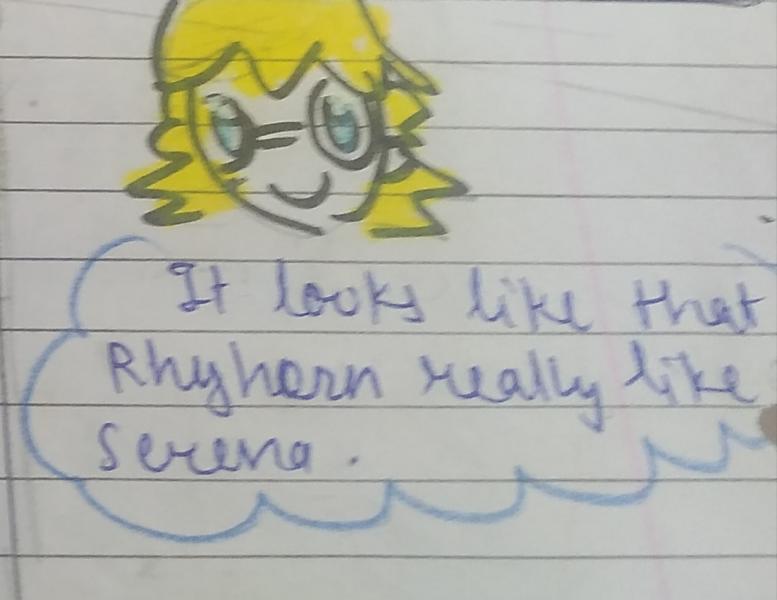 It looks like that
Rhyhorn really like
Serena.